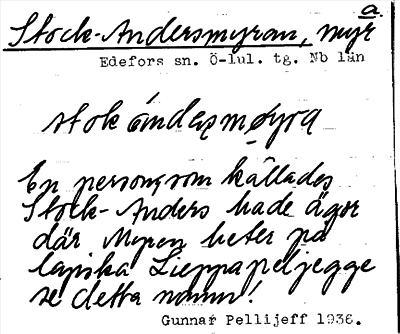 a.
Stock-Andersmyran, myr
Edefors sn. Ö-lul. tg. Nb län
stok ándaṣmøyra
En person, som kallades
Stock-Anders hade ägor
där. Myren heter på
lapska Lieppapeljegge
se detta namn!
Gunnar Pellijeff 1936.